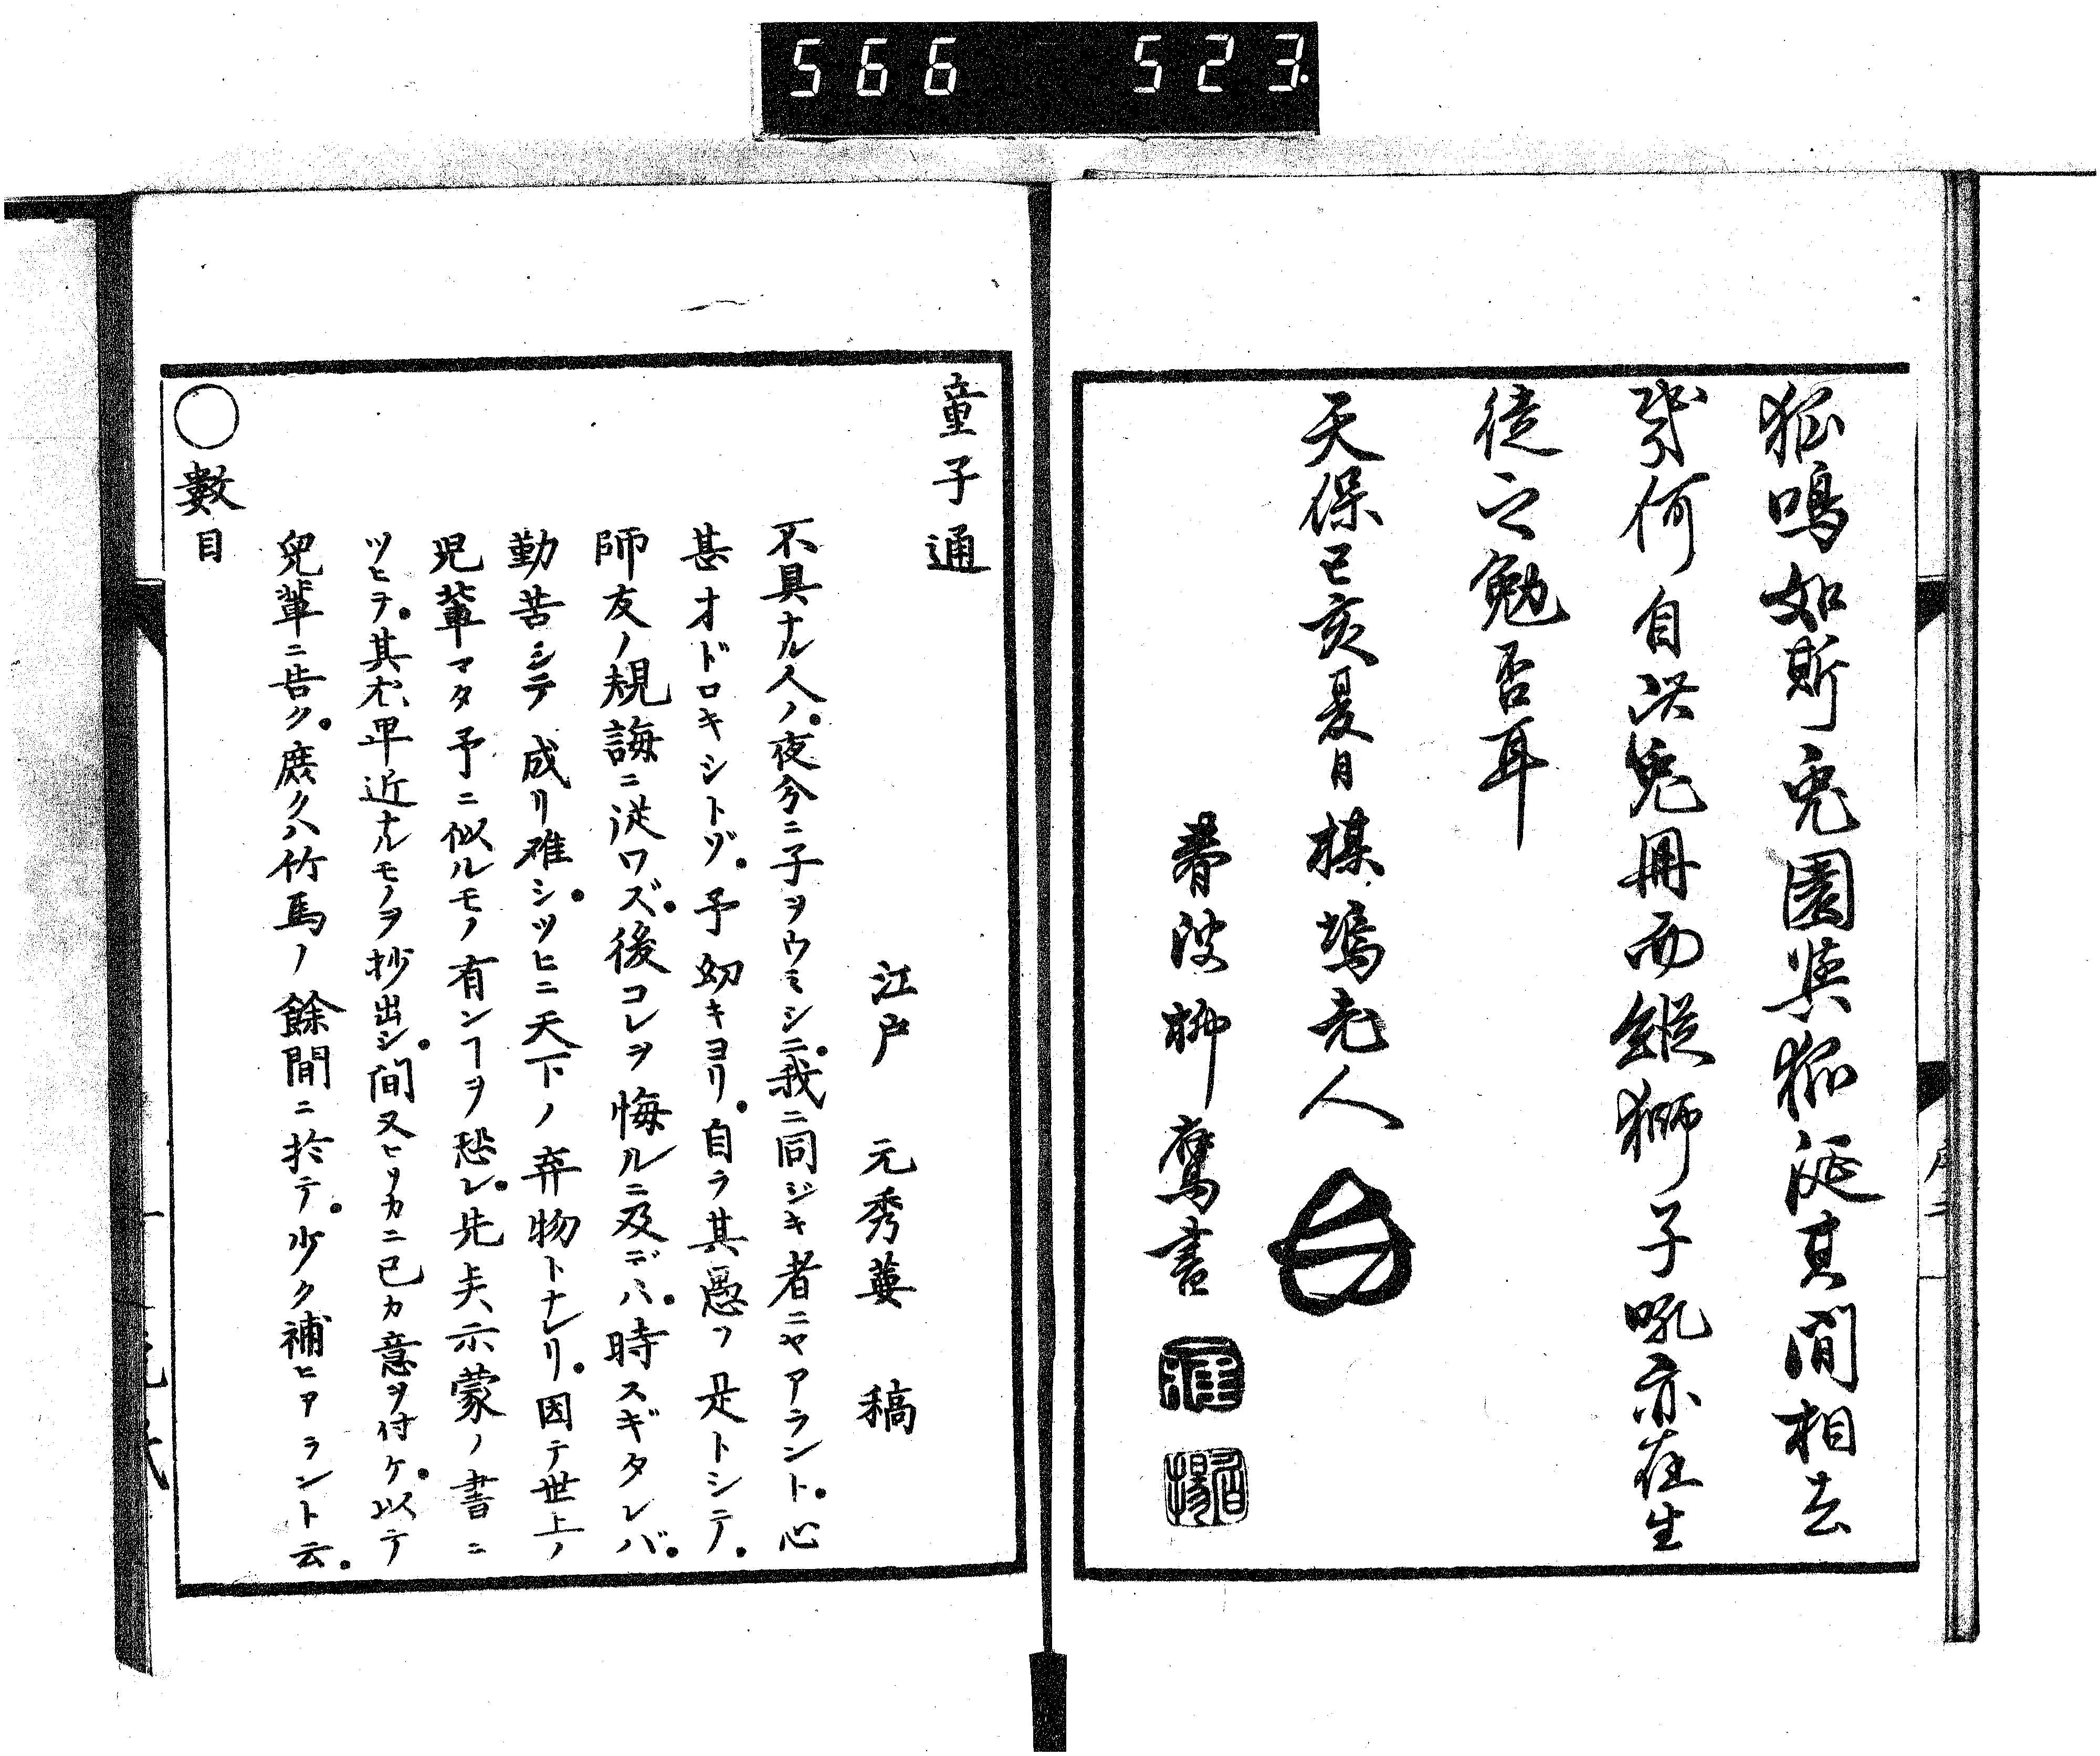 566 523.
狐鳴如斯兎園與狐涎其間相去
幾何自此兎冊而縱獅子吼亦在生
徒之勉否耳
天保己亥夏日棋塢老人
柳鷹書
童子通
江戸 元秀蕚 稿
不具ナル人ノ。夜分ニ子ヲウミシニ。我ニ同ジキ者ニヤアラント。心
甚オドロキシトゾ。予幼キヨリ。自ラ其愚ヲ是トシテ。
師友ノ規誨ニ從ワズ。後コレヲ悔ルニ及デハ。時スギタレバ。
勤苦シテ成リ難シ。ツヒニ天下ノ弃物トナレリ。因テ世上ノ
児輩マタ予ニ似ルモノ有ンヿヲ恐レ。先夫示蒙ノ書ニ
ツヒテ。其尤卑近ナルモノヲ抄出シ。間又ヒソカニ己カ意ヲ付ケ。以テ
兒輩ニ告ク。庶クハ竹馬ノ餘間ニ於テ。少ク補ヒアラント云。
○數目